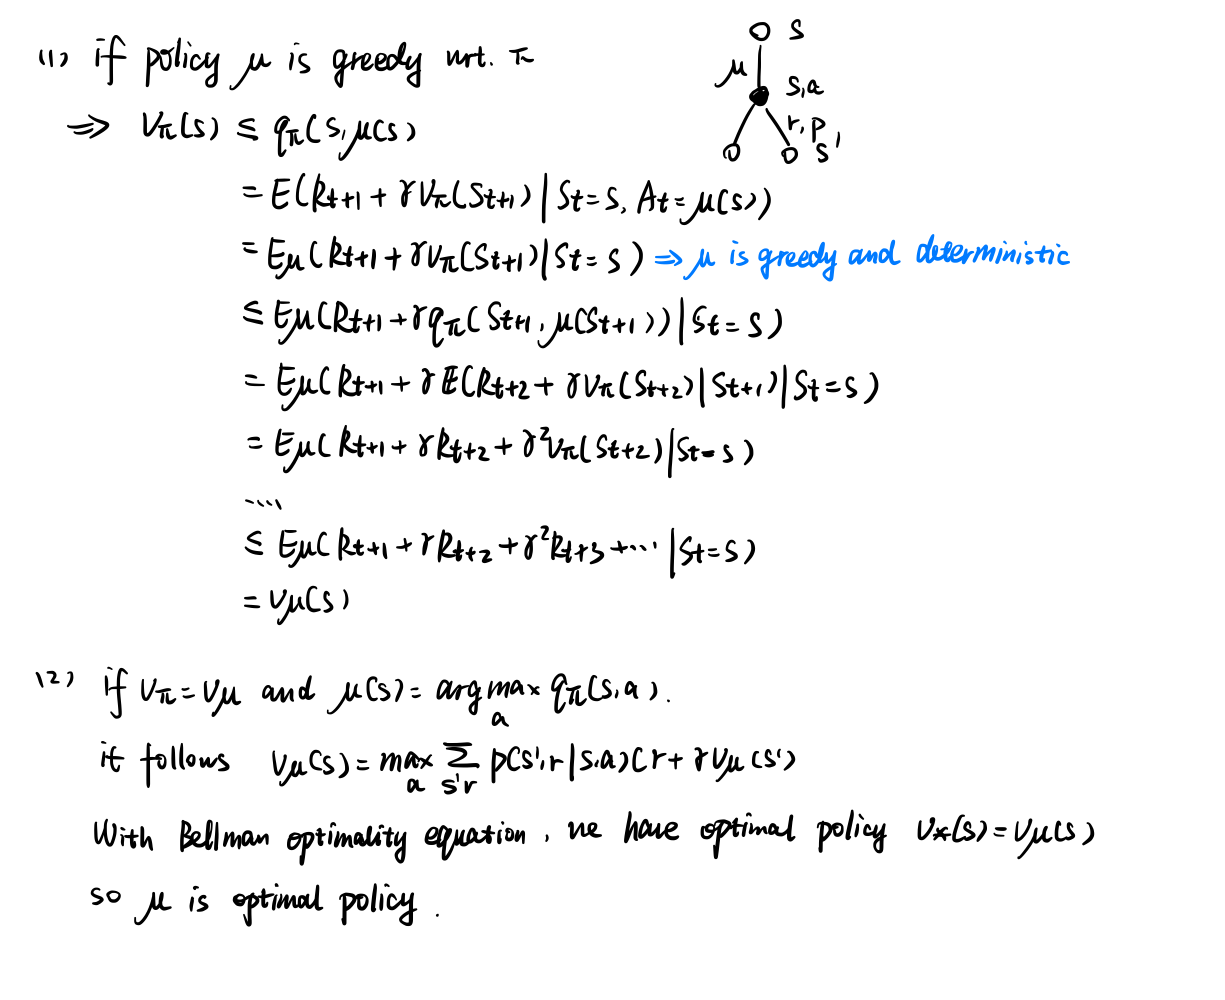 (1) if policy μ is greedy wrt. π
⇒ Vπ(s) ≤ qπ(s, μ(s)
= E(Rt+1 + γVπ(St+1) | St=s, At=μ(s))
= Eμ(Rt+1 + γVπ(St+1) | St=s) ⇒ μ is greedy and deterministic
≤ Eμ(Rt+1 + γqπ(St+1, μ(St+1)) | St=s)
= Eμ(Rt+1 + γE(Rt+2 + γVπ(St+2) | St+1) | St=s)
= Eμ(Rt+1 + γRt+2 + γ²Vπ(St+2) | St=s)
....
≤ Eμ(Rt+1 + γRt+2 + γ²Rt+3 + ... | St=s)
= Vμ(s)
s
μ
s,a
r,p
s'
(2) if Vπ=Vμ and μ(s)= argmax qπ(s,a).
a
it follows Vμ(s)= max Σ p(s',r|s,a)(r+γVμ(s')
a s'r
With Bellman optimality equation, we have optimal policy V*(s)=Vμ(s)
so μ is optimal policy.